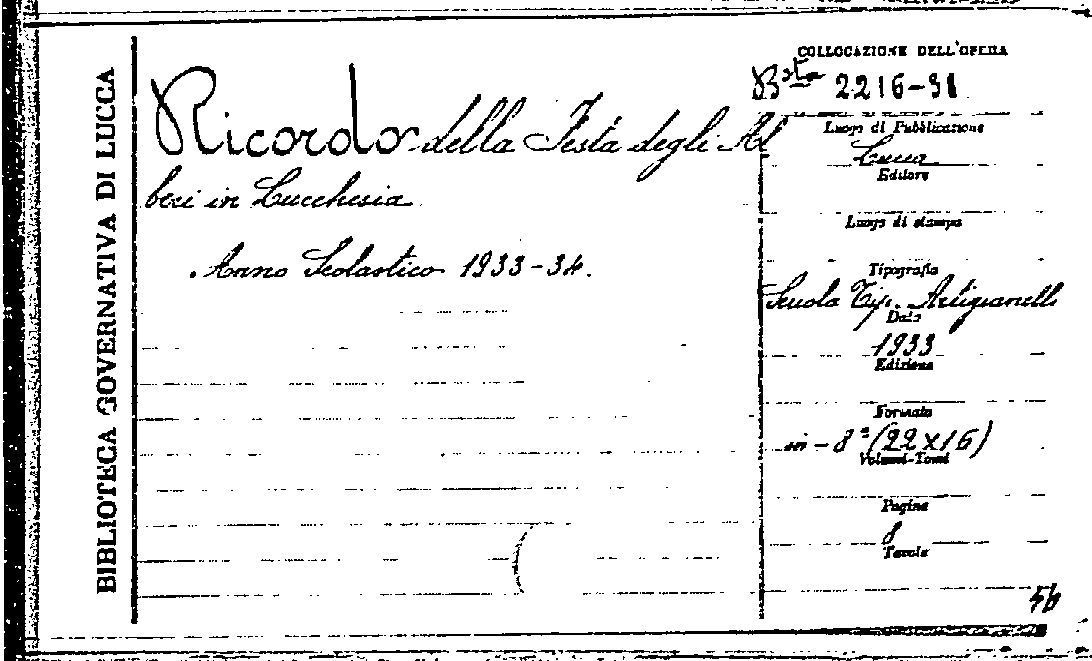 BIBLIOTECA GOVERNATIVA DI LUCCA
Ricordo della Festa degli Al
beri in Lucchesia
Anno Scolastico 1933-34.
COLLOCAZIONE DELL'OPERA
Bsta 2216-31
Luogo di Pubblicazione
Lucca
Editore
Luogo di stampa
Tipografia
Scuola Tip. Artigianelli
Data
1933
Edizione
Formato
in-8° (22x16)
Volumi-Tomi
Pagine
8
Tavole